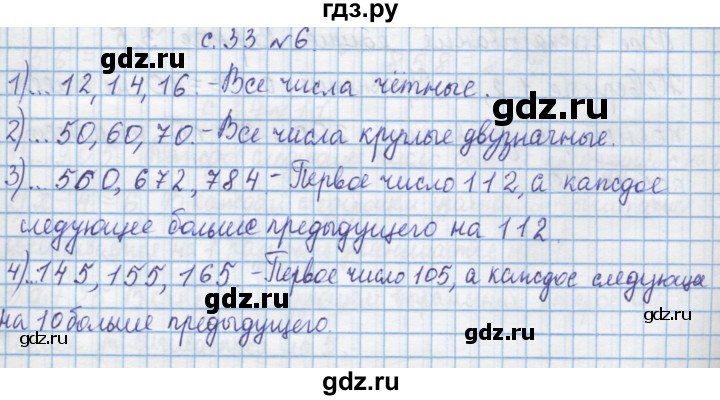 гдз.ру
с. 33 №6
1)... 12, 14, 16. - Все числа чётные.
2)... 50, 60, 70. - Все числа круглые двузначные.
3)... 560, 672, 784 - Первое число 112, а каждое
следующее больше предыдущего на 112.
4)... 145, 155, 165 - Первое число 105, а каждое следующе
на 10 больше предыдущего.
gdz.ru
gdz.ru
gdz.ru
gdz.ru
gdz.ru
gdz.ru
gdz.ru